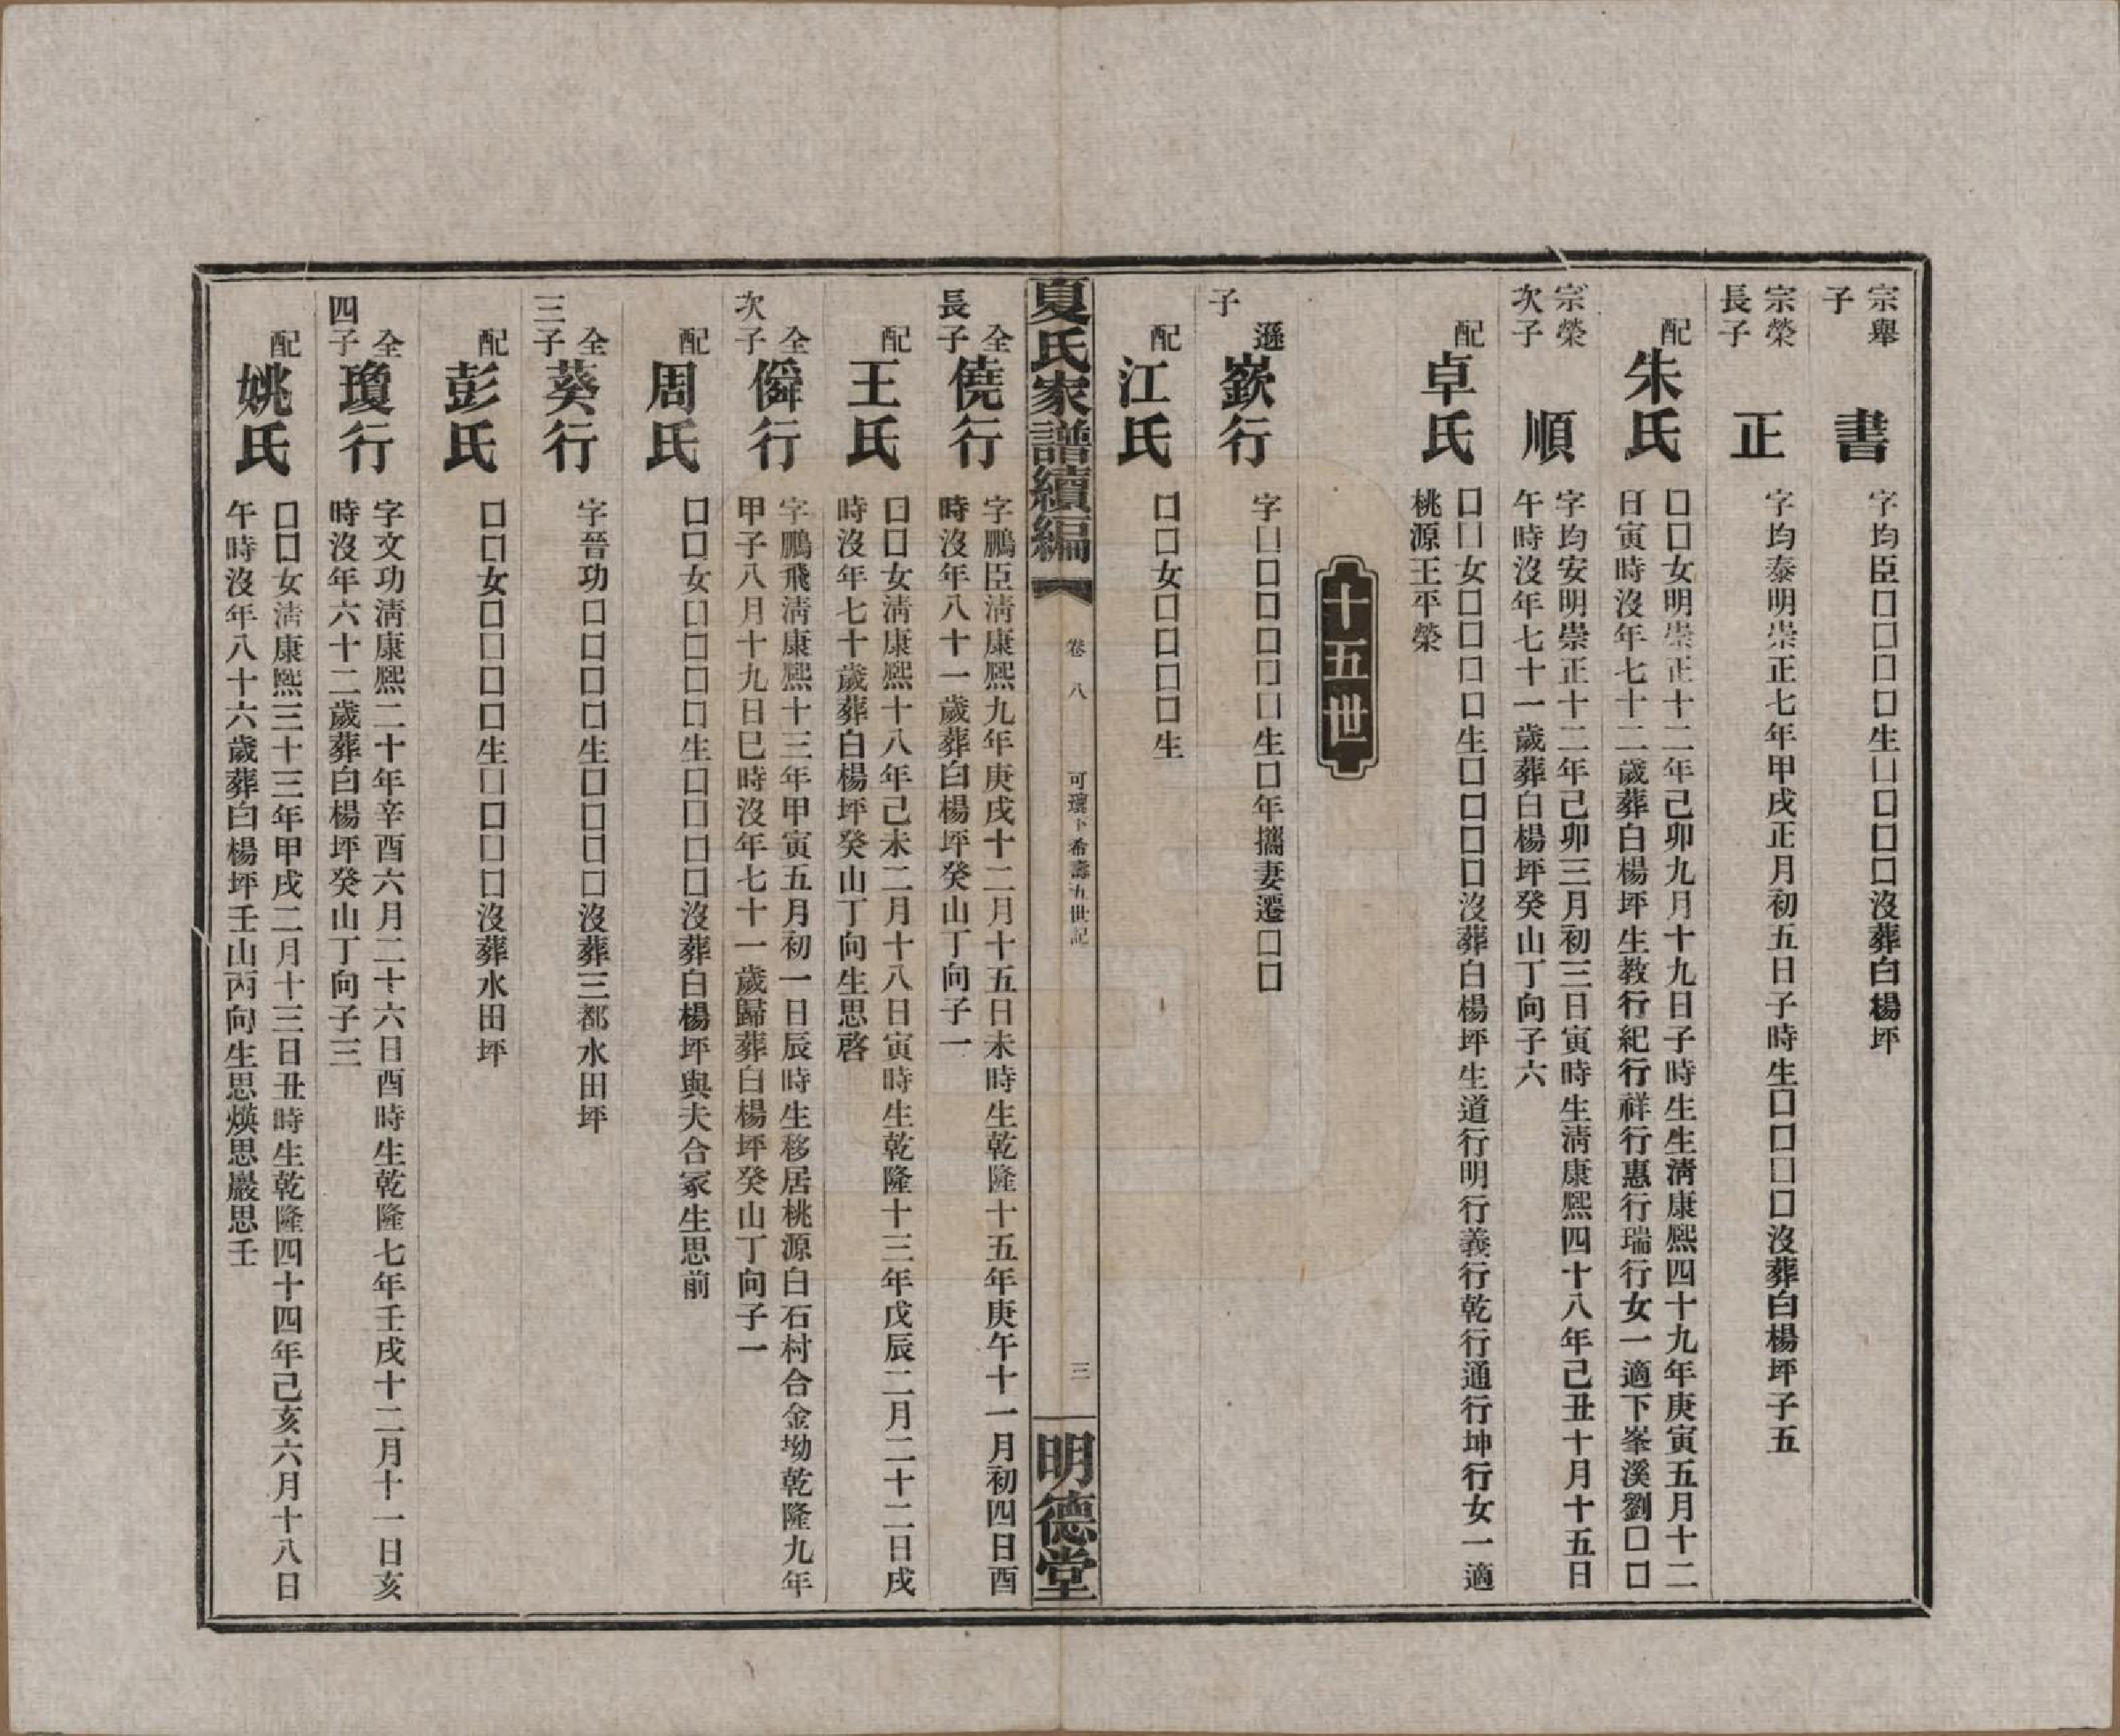 宗舉
子
書
字均臣囗囗囗囗生囗囗囗囗沒葬白楊坪
宗榮
長子
正
字均泰明崇正七年甲戌正月初五日子時生囗囗囗囗沒葬白楊坪子五
配
朱氏
囗囗女明崇正十二年己卯九月十九日子時生生淸康熙四十九年庚寅五月十二
日寅時沒年七十二歲葬白楊坪生教行紀行祥行惠行瑞行女一適下峯溪劉囗囗
宗榮
次子
順
字均安明崇正十二年己卯三月初三日寅時生淸康熙四十八年己丑十月十五日
午時沒年七十一歲葬白楊坪癸山丁向子六
配
卓氏
囗囗女囗囗囗囗生囗囗囗囗沒葬白楊坪生道行明行義行乾行通行坤行女一適
桃源王平榮
十五世
遜
子
嶔行
字囗囗囗囗囗囗生囗年攜妻遷囗囗
配
江氏
囗囗女囗囗囗囗生
夏氏家譜續編
卷八
可瓌下希壽五世記
三
明德堂
仝
長子
僥行
字鵬臣淸康熙九年庚戌十二月十五日未時生乾隆十五年庚午十一月初四日酉
時沒年八十一歲葬白楊坪癸山丁向子一
配
王氏
囗囗女淸康熙十八年己未二月十八日寅時生乾隆十三年戊辰二月二十二日戌
時沒年七十歲葬白楊坪癸山丁向生思啓
仝
次子
僢行
字鵬飛淸康熙十三年甲寅五月初一日辰時生移居桃源白石村合金坳乾隆九年
甲子八月十九日巳時沒年七十一歲歸葬白楊坪癸山丁向子一
配
周氏
囗囗女囗囗囗囗生囗囗囗囗沒葬白楊坪與夫合冢生思前
仝
三子
葵行
字晉功囗囗囗囗生囗囗囗囗沒葬三都水田坪
配
彭氏
囗囗女囗囗囗囗生囗囗囗囗沒葬水田坪
仝
四子
瓊行
字文功淸康熙二十年辛酉六月二十六日酉時生乾隆七年壬戌十二月十一日亥
時沒年六十二歲葬白楊坪癸山丁向子三
配
姚氏
囗囗女淸康熙三十三年甲戌二月十三日丑時生乾隆四十四年己亥六月十八日
午時沒年八十六歲葬白楊坪壬山丙向生思煐思巖思壬